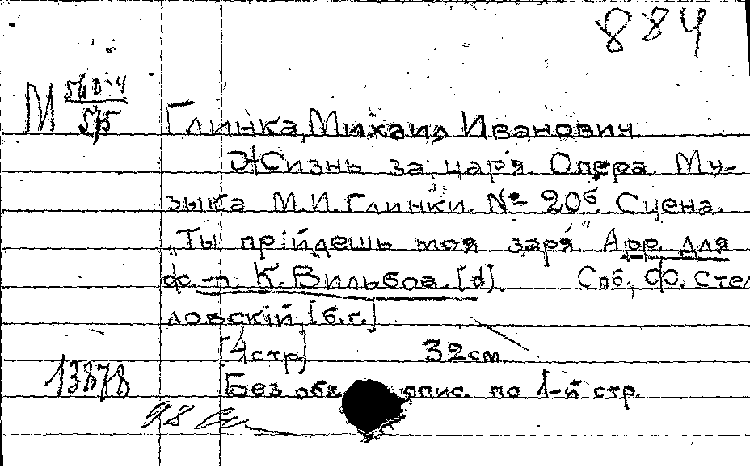 884
М 560-4
5/5
Глинка, Михаил Иванович
Жизнь за царя. Опера. Му-
зыка М.И. Глинки. № 20б. Сцена.
„Ты прійдешь моя заря" Арр. для
ф.-п. К. Вильбоа. [d]. Спб, Ф. Стел
ловскій, [б.г.]
[4 стр] 32 см
13878 Без обл. опис. по 1-й стр.
98